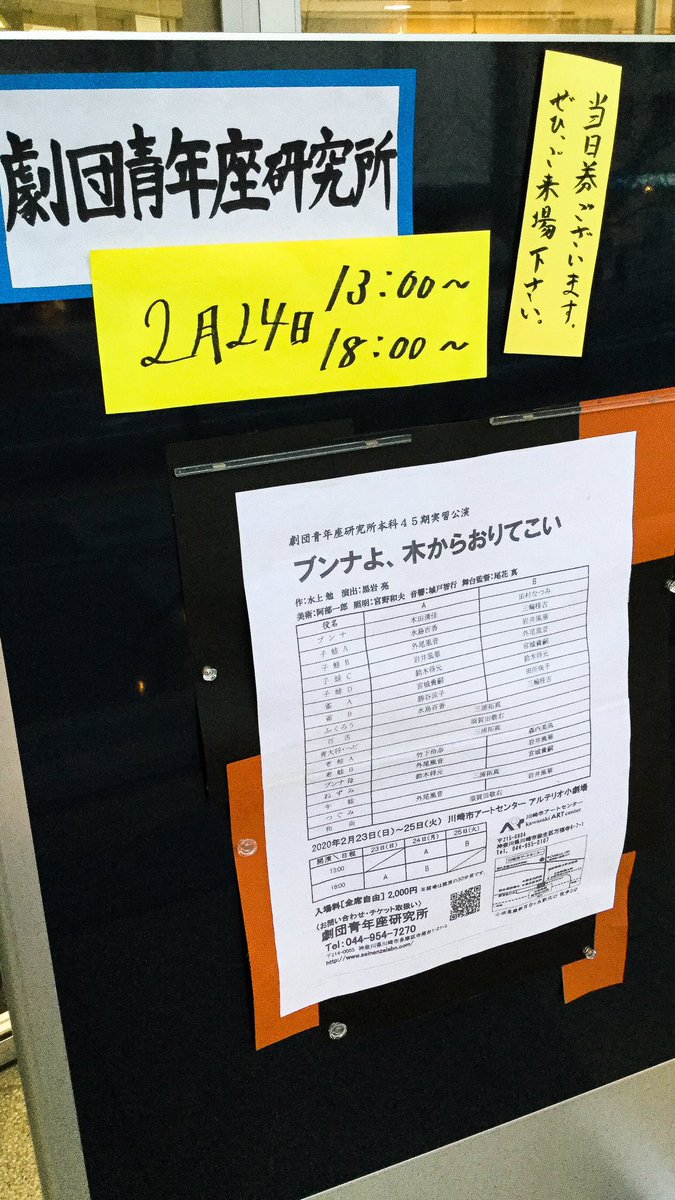 劇団青年座研究所
2月24日 13:00～
18:00～
当日券ございます。
ぜひ、ご来場下さい。
劇団青年座研究所本科45期実習公演
ブンナよ、木からおりてこい
作:水上 勉 演出:黒岩 亮
美術:阿部一郎 照明:宮野和夫 音響:城戸智行 舞台監督:尾花 真
役名 A B
ブンナ 本田濱佳 田村なつみ
子蛙A 水島百香 三輪桂古
子蛙B 外尾風音 岩井風華
子蛙C 岩井風華 宮城貴嗣
子蛙D 鈴木将元 鈴木将元
雀A 宮城貴嗣
雀B 勝谷涼子 三輪桂古
ふくろう 水島百香 三浦拓真
百舌 須賀田敬右
青大将・ヘビ 三浦拓真
老蛙A 竹下玲奈
老蛙B 外尾風音 岩井風華
ブンナ母 鈴木将元 宮城貴嗣
ねずみ 三浦拓真
牛蛙 外尾風音 岩井風華
つぐみ 須賀田敬右
和尚
2020年2月23日(日)～25日(火) 川崎市アートセンター アルテリオ小劇場
開演＼日程 23日(日) 24日(月) 25日(火)
13:00 A B
18:00 A B
川崎市アートセンター
kawasaki ART center
〒215-0004
神奈川県川崎市麻生区万福寺6-7-1
Tel. 044-955-0107
入場料[全席自由] 2,000円 ※開場は開演の30分前です。
〈お問い合わせ・チケット取扱い〉
劇団青年座研究所
Tel:044-954-7270
http://www.seinenzalabo.com/